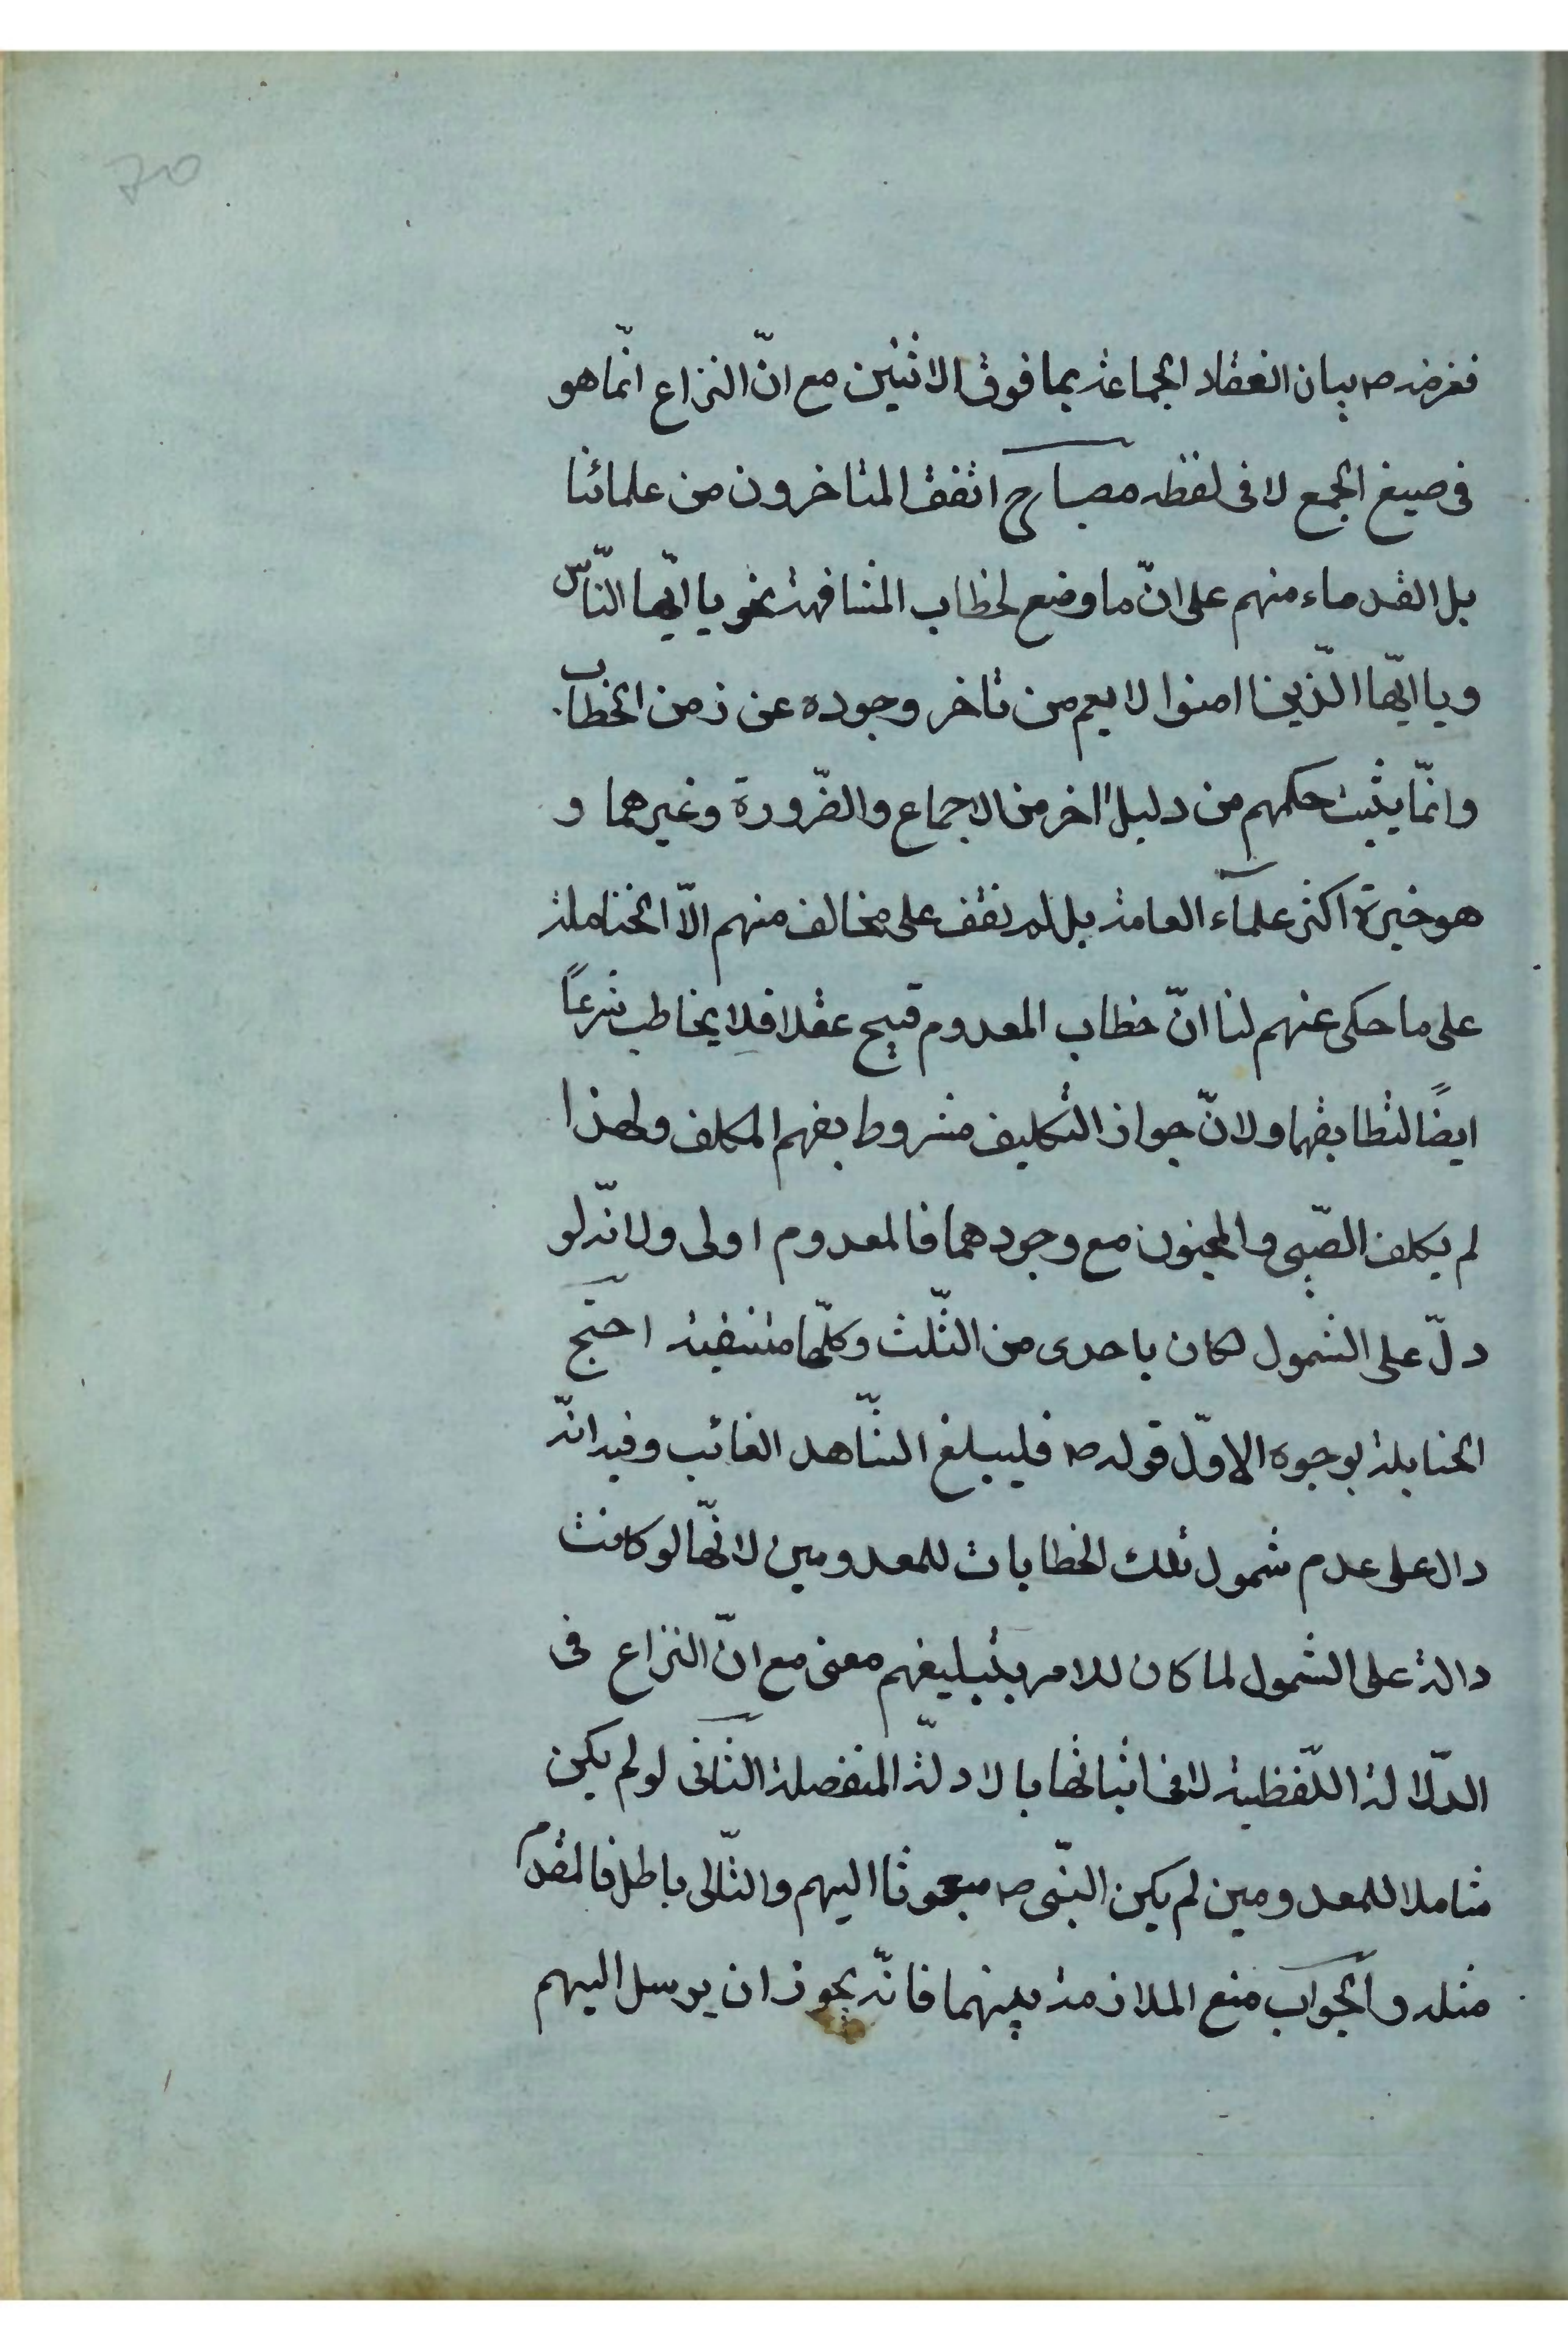 70
فغرضه ص بيان انعقاد الجماعة بما فوق الاثنين مع انّ النزاع انّما هو
فى صيغ الجمع لا فى لفظه مصباح اتفق المتاخرون من علمائنا
بل القدماء منهم على انّ ما وضع لخطاب المشافهة نحو يا ايّها النّاس
ويا ايّها الّذين امنوا لا يعم من تاخر وجوده عن زمن الخطاب
وانّما يثبت حكمهم من دليل اخر من الاجماع والضّرورة وغيرهما و
هو خيرة اكثر علماء العامة بل لم نقف على مخالف منهم الاّ الحنابلة
على ما حكى عنهم لنا انّ خطاب المعدوم قبيح عقلا فلا يخاطب شرعًا
ايضًا لتطابقهما ولانّ جواز التكليف مشروط بفهم المكلف ولهذا
لم يكلف الصّبى والمجنون مع وجودهما فالمعدوم اولى ولانّه لو
دلّ على الشمول لكان باحدى من الثّلث وكلّها منتفية احتج
الحنابلة بوجوه الاوّل قوله ص فليبلغ الشّاهد الغائب وفيه انّه
دال على عدم شمول تلك الخطابات للمعدومين لانّها لو كانت
دالة على الشمول لما كان للامر بتبليغهم معنى مع انّ النزاع فى
الدّلالة اللّفظية لا فى اثباتها بالادلّة المنفصلة الثانى لو لم يكن
شاملا للمعدومين لم يكن النبّى ص مبعوثا اليهم والتّالى باطل فالمقدم
مثله والجواب منع الملازمة بينهما فانّه يجوز ان يرسل اليهم